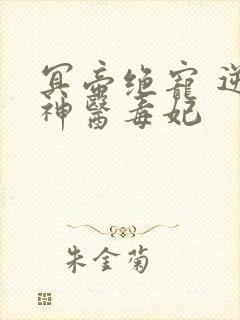 冥帝绝宠 逆
神醫毒妃
朱金菊